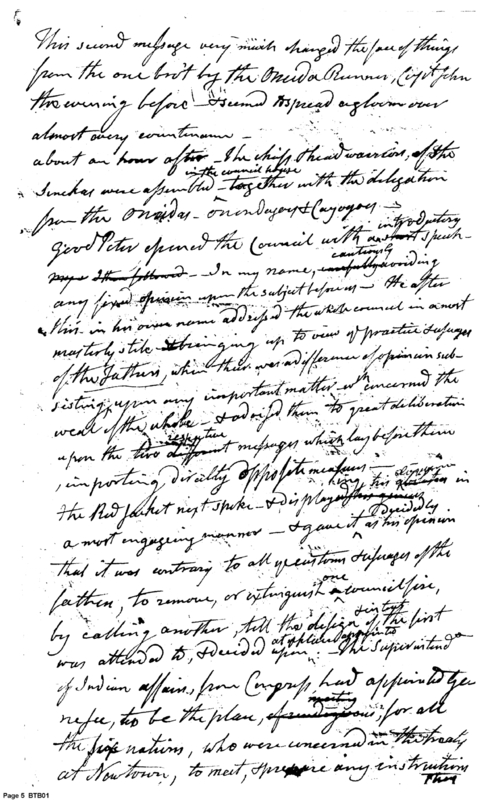 This second message very much changed the face of things
from the one bro't by the Oneida Runner, Capt John
the evening before - & seemed to spread a gloom over
almost every countenance -
about an hour after - The chiefs & head warriors, of the
in the council house
Senekas were assembled - together with the delegation
from the Oneidas - Onondagoes & Cayogoes -
introductory
good Peter opened the Council with a speech -
cautiously
- In my name, carefully avoiding
any fixed opinion upon the subject before us - He after
this in his own name addressed the whole council in a most
masterly stile - bringing up to view ye practice & usages
of the Fathers, when there was a difference of opinion sub-
sisting, upon any important matter wh concerned the
weal of the whole - & advised them to great deliberation
respective
upon the two different messages which lay before them
, importing directly opposite measures -
the Red Jacket next spoke - & displayed his in
a most engageing manner - & gave it decidedly as his opinion
that it was contrary to all ye customs & usuages of the
one
fathers, to remove, or extinguish a council fire,
by calling another, till the design of the first
at ye place appointed
was attended to, & decided upon - The Superintend
of Indian affairs, from Congress, had appointed Gen
meeting
nesee, to be the place, of rendezvous, for all
the six nations, who were concerned in the treaty
at Newtown, to meet, & any instructions
they
Page 5 BTB01